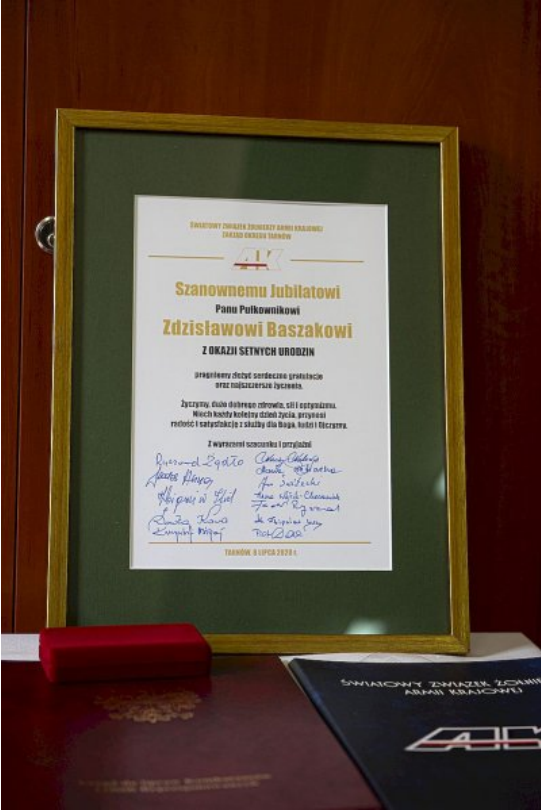 ŚWIATOWY ZWIĄZEK ŻOŁNIERZY ARMII KRAJOWEJ
ZARZĄD OKRĘGU TARNÓW
AK
Szanownemu Jubilatowi
Panu Pułkownikowi
Zdzisławowi Baszakowi
Z OKAZJI SETNYCH URODZIN
pragniemy złożyć serdeczne gratulacje
oraz najszczersze życzenia.
Życzymy, dużo dobrego zdrowia, sił i optymizmu.
Niech każdy kolejny dzień życia, przynosi
radość i satysfakcję z służby dla Boga, ludzi i Ojczyzny.
Z wyrazami szacunku i przyjaźni
Ryszard Żądło
TARNÓW, 8 LIPCA 2020 r.
ŚWIATOWY ZWIĄZEK ŻOŁNIE
ARMII KRAJOWEJ
AK